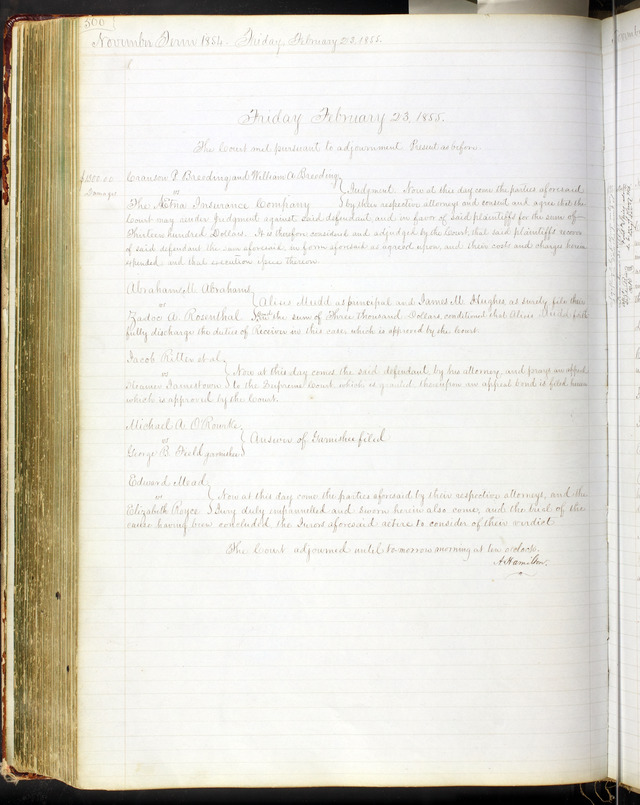 500
November Term 1854. Friday, February 23, 1855.
Friday February 23, 1855.
The Court met pursuant to adjournment Present as before
$1300.00
Damages
Cranson P. Breeding, and William A. Breeding,
vs
The Aetna Insurance Company
Judgment. Now at this day come the parties aforesaid
by their respective attorneys and consent and agree that the
Court may render judgment against said defendant, and in favor of said plaintiffs for the sum of
Thirteen hundred Dollars. It is therefore considered and adjudged by the Court, that said plaintiffs recover
of said defendant the sum aforesaid, in form aforesaid as agreed upon, and their costs and charges herein
expended and that execution issue therefor.
Abraham M. Abrahams,
vs
Zadoc A. Rosenthal
Alexis Mudd as principal and James M. Hughes as surety, file their
Bond in the sum of Three thousand Dollars, conditioned that Alexis Mudd faith
fully discharge the duties of Receiver in this case, which is approved by the Court.
Jacob Ritter et al,
vs
Steamer Jamestown
Now at this day comes the said defendant, by his attorney, and prays an appeal
to the Supreme Court which is granted thereupon an appeal bond is filed herein
which is approved by the Court.
Michael A. O'Rourke,
vs
George B. Field garnishee
Answer of Garnishee filed
Edward Mead,
vs
Elizabeth Royce
Now at this day come the parties aforesaid by their respective attorneys, and the
Jury duly empannelled and sworn herein also come, and the trial of the
cause having been concluded, the Jurors aforesaid retire to consider of their verdict
The Court adjourned until to-morrow morning at ten o'clock.
A Hamilton.